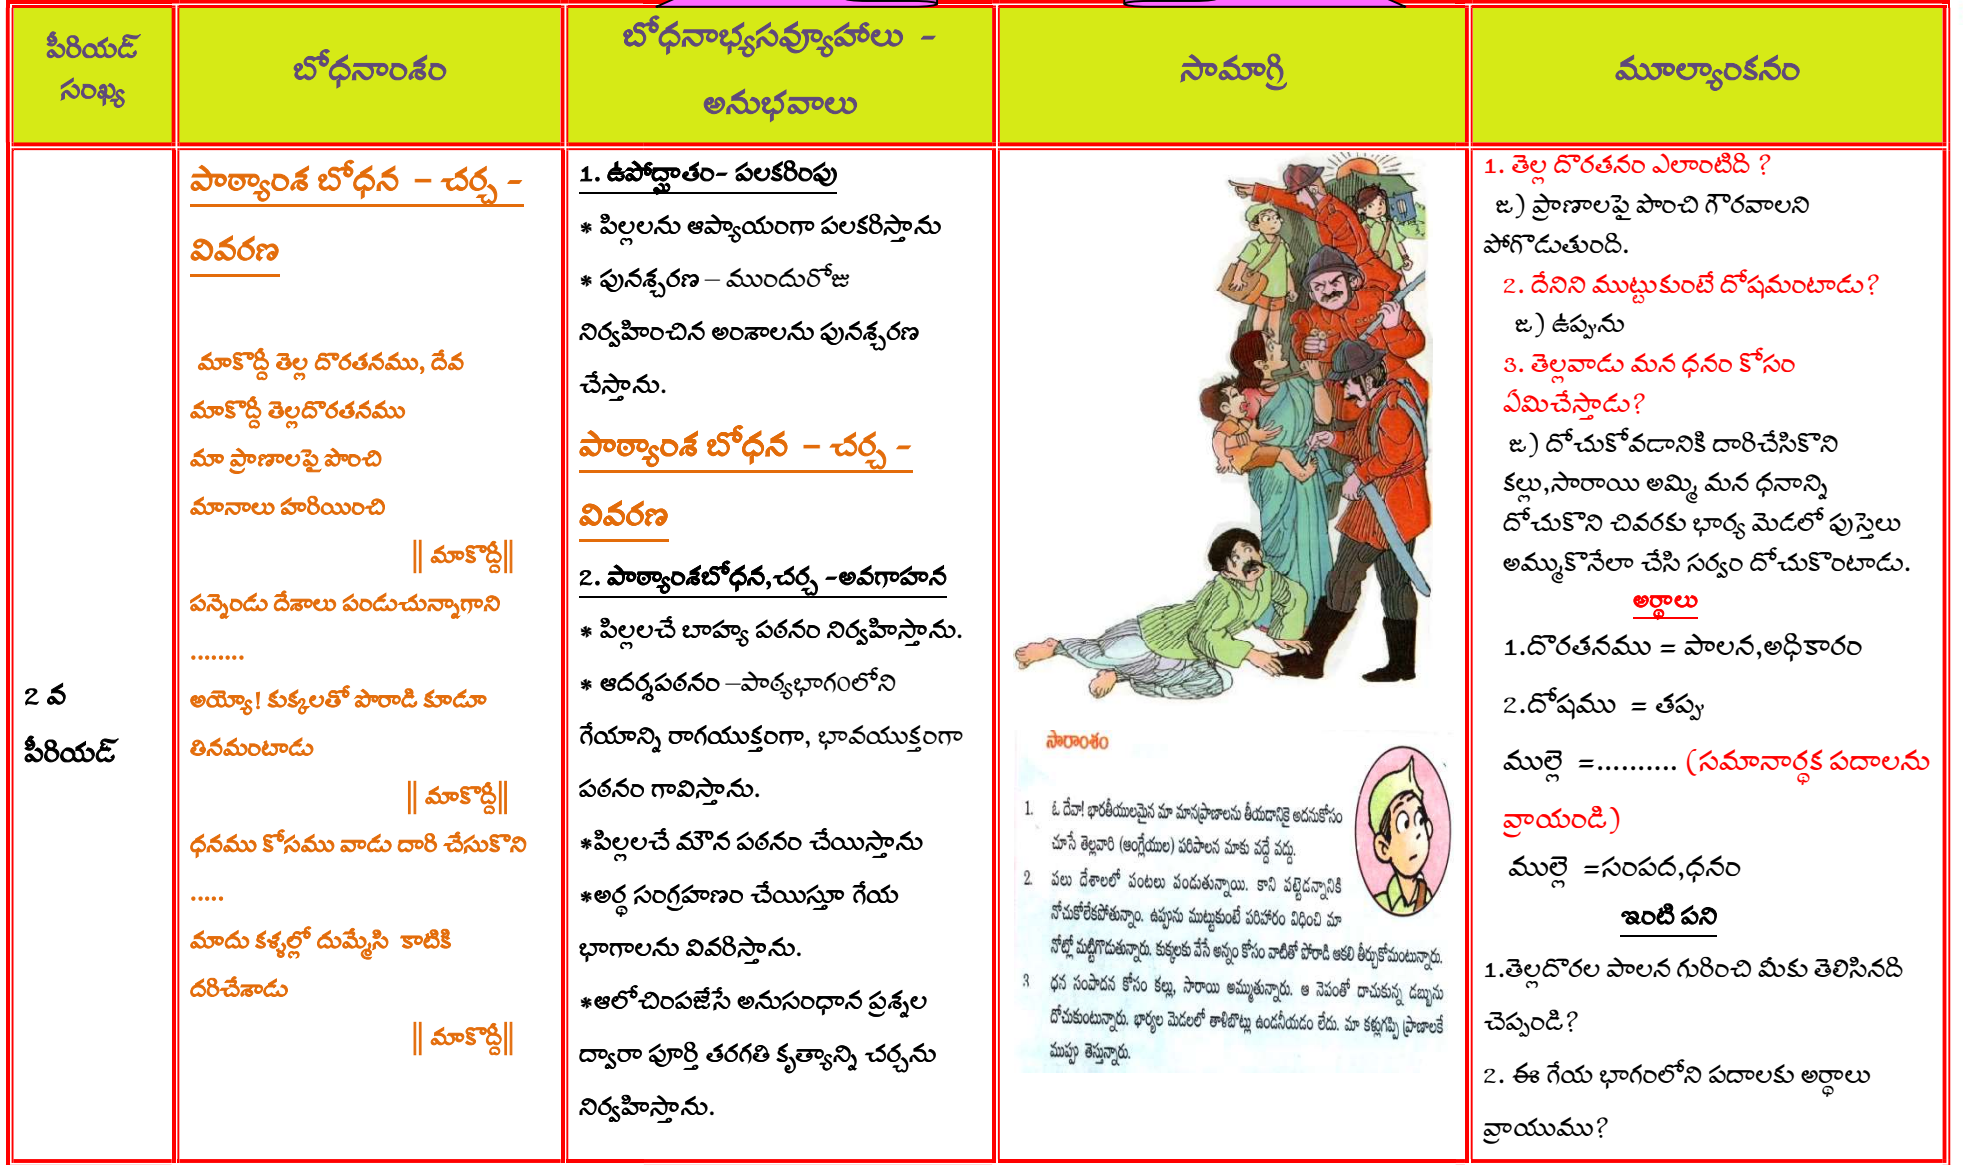 పీరియడ్
సంఖ్య
బోధనాంశం
బోధనాభ్యసవ్యూహాలు -
అనుభవాలు
సామాగ్రి
మూల్యాంకనం
2 వ
పీరియడ్
పాఠ్యాంశ బోధన – చర్చ -
వివరణ
మాకొద్దీ తెల్ల దొరతనము, దేవ
మాకొద్దీ తెల్లదొరతనము
మా ప్రాణాలపై పొంచి
మానాలు హరియించి
|| మాకొద్దీ||
పన్నెండు దేశాలు పండుచున్నాగాని
........
అయ్యో! కుక్కలతో పొరాడి కూడూ
తినమంటాడు
|| మాకొద్దీ||
ధనము కోసము వాడు దారి చేసుకొని
.....
మాదు కళ్ళల్లో దుమ్మేసి కాటికి
దరిచేశాడు
|| మాకొద్దీ||
1. ఉపోద్ఘాతం- పలకరింపు
* పిల్లలను ఆప్యాయంగా పలకరిస్తాను
* పునశ్చరణ – ముందురోజు
నిర్వహించిన అంశాలను పునశ్చరణ
చేస్తాను.
పాఠ్యాంశ బోధన – చర్చ -
వివరణ
2. పాఠ్యాంశబోధన,చర్చ -అవగాహన
* పిల్లలచే బాహ్య పఠనం నిర్వహిస్తాను.
* ఆదర్శపఠనం –పాఠ్యభాగంలోని
గేయాన్ని రాగయుక్తంగా, భావయుక్తంగా
పఠనం గావిస్తాను.
*పిల్లలచే మౌన పఠనం చేయిస్తాను
*అర్థ సంగ్రహణం చేయిస్తూ గేయ
భాగాలను వివరిస్తాను.
*ఆలోచింపజేసే అనుసంధాన ప్రశ్నల
ద్వారా పూర్తి తరగతి కృత్యాన్ని చర్చను
నిర్వహిస్తాను.
సారాంశం
1. ఓ దేవా! భారతీయులమైన మా మానప్రాణాలను తీయడానికై అదనుకోసం
చూసే తెల్లవారి (ఆంగ్లేయుల) పరిపాలన మాకు వద్దే వద్దు.
2. పలు దేశాలలో పంటలు పండుతున్నాయి. కాని పట్టెడన్నానికి
నోచుకోలేకపోతున్నాం. ఉప్పును ముట్టుకుంటే పరిహారం విధించి మా
నోట్లో మట్టిగొడుతున్నారు. కుక్కలకు వేసే అన్నం కోసం వాటితో పోరాడి ఆకలి తీర్చుకోమంటున్నారు.
3 ధన సంపాదన కోసం కల్లు, సారాయి అమ్ముతున్నారు. ఆ నెపంతో దాచుకున్న డబ్బును
దోచుకుంటున్నారు. భార్యల మెడలలో తాళిబొట్లు ఉండనీయడం లేదు. మా కళ్లుగప్పి ప్రాణాలకే
ముప్పు తెస్తున్నారు.
1. తెల్ల దొరతనం ఎలాంటిది ?
జ) ప్రాణాలపై పొంచి గౌరవాలని
పోగొడుతుంది.
2. దేనిని ముట్టుకుంటే దోషమంటాడు?
జ) ఉప్పును
3. తెల్లవాడు మన ధనం కోసం
ఏమిచేస్తాడు?
జ) దోచుకోవడానికి దారిచేసికొని
కల్లు,సారాయి అమ్మి మన ధనాన్ని
దోచుకొని చివరకు భార్య మెడలో పుస్తెలు
అమ్ముకొనేలా చేసి సర్వం దోచుకొంటాడు.
అర్థాలు
1.దొరతనము = పాలన,అధికారం
2.దోషము = తప్పు
ముల్లె =.......... (సమానార్థక పదాలను
వ్రాయండి)
ముల్లె =సంపద,ధనం
ఇంటి పని
1.తెల్లదొరల పాలన గురించి మీకు తెలిసినది
చెప్పండి?
2. ఈ గేయ భాగంలోని పదాలకు అర్థాలు
వ్రాయుము?